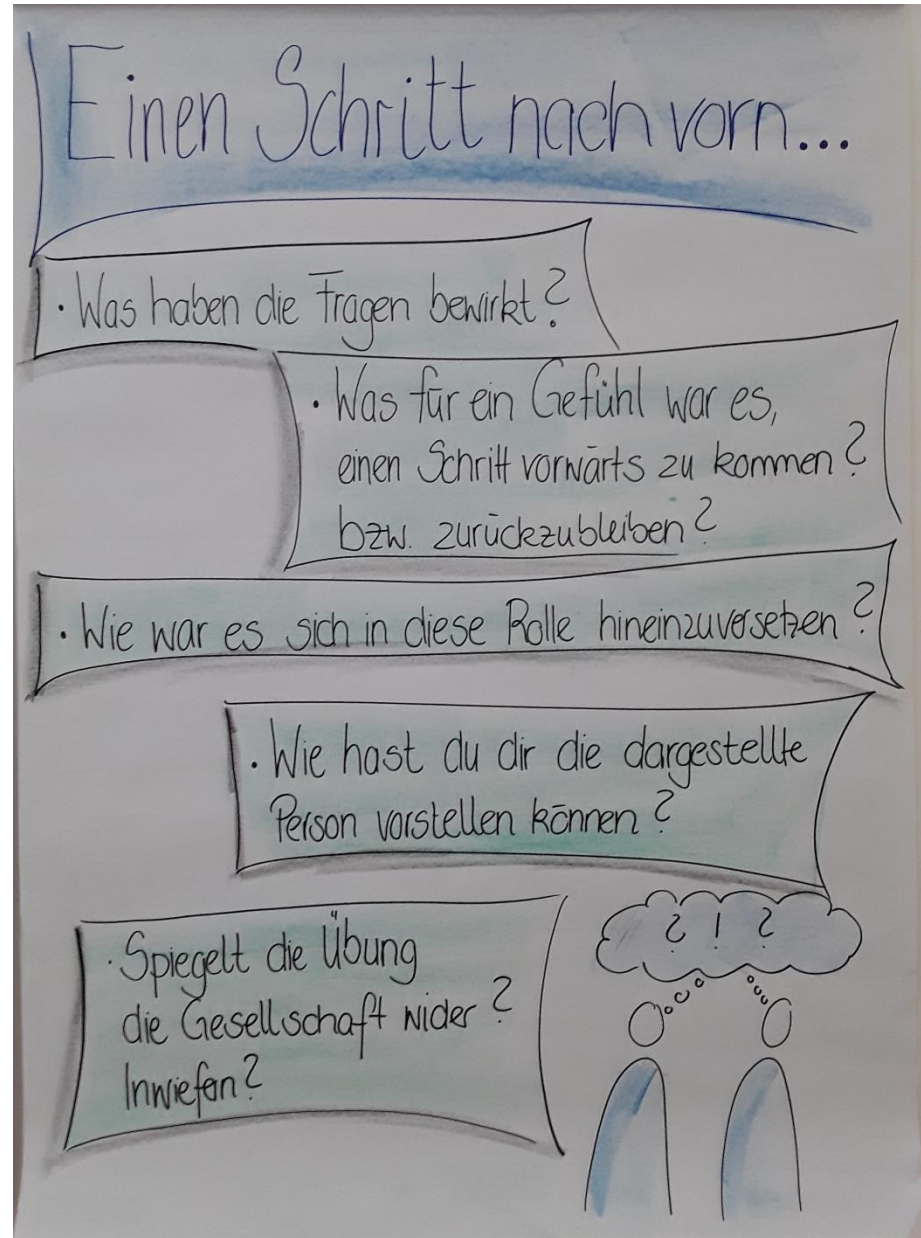 Einen Schritt nach vorn...
· Was haben die Fragen bewirkt?
· Was für ein Gefühl war es,
einen Schritt vorwärts zu kommen?
bzw. zurückzubleiben?
· Wie war es sich in diese Rolle hineinzuversetzen?
· Wie hast du dir die dargestellte
Person vorstellen können?
· Spiegelt die Übung
die Gesellschaft wider?
Inwiefern?
? ! ?